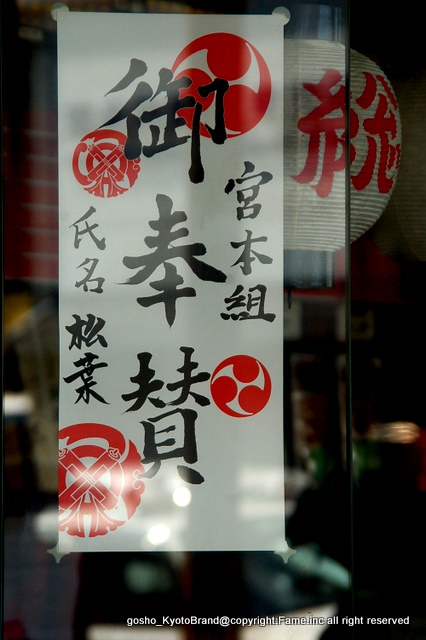 宮本組
御奉賛
氏名 松葉
gosho_KyotoBrand@copyright.Fame.inc all right reserved